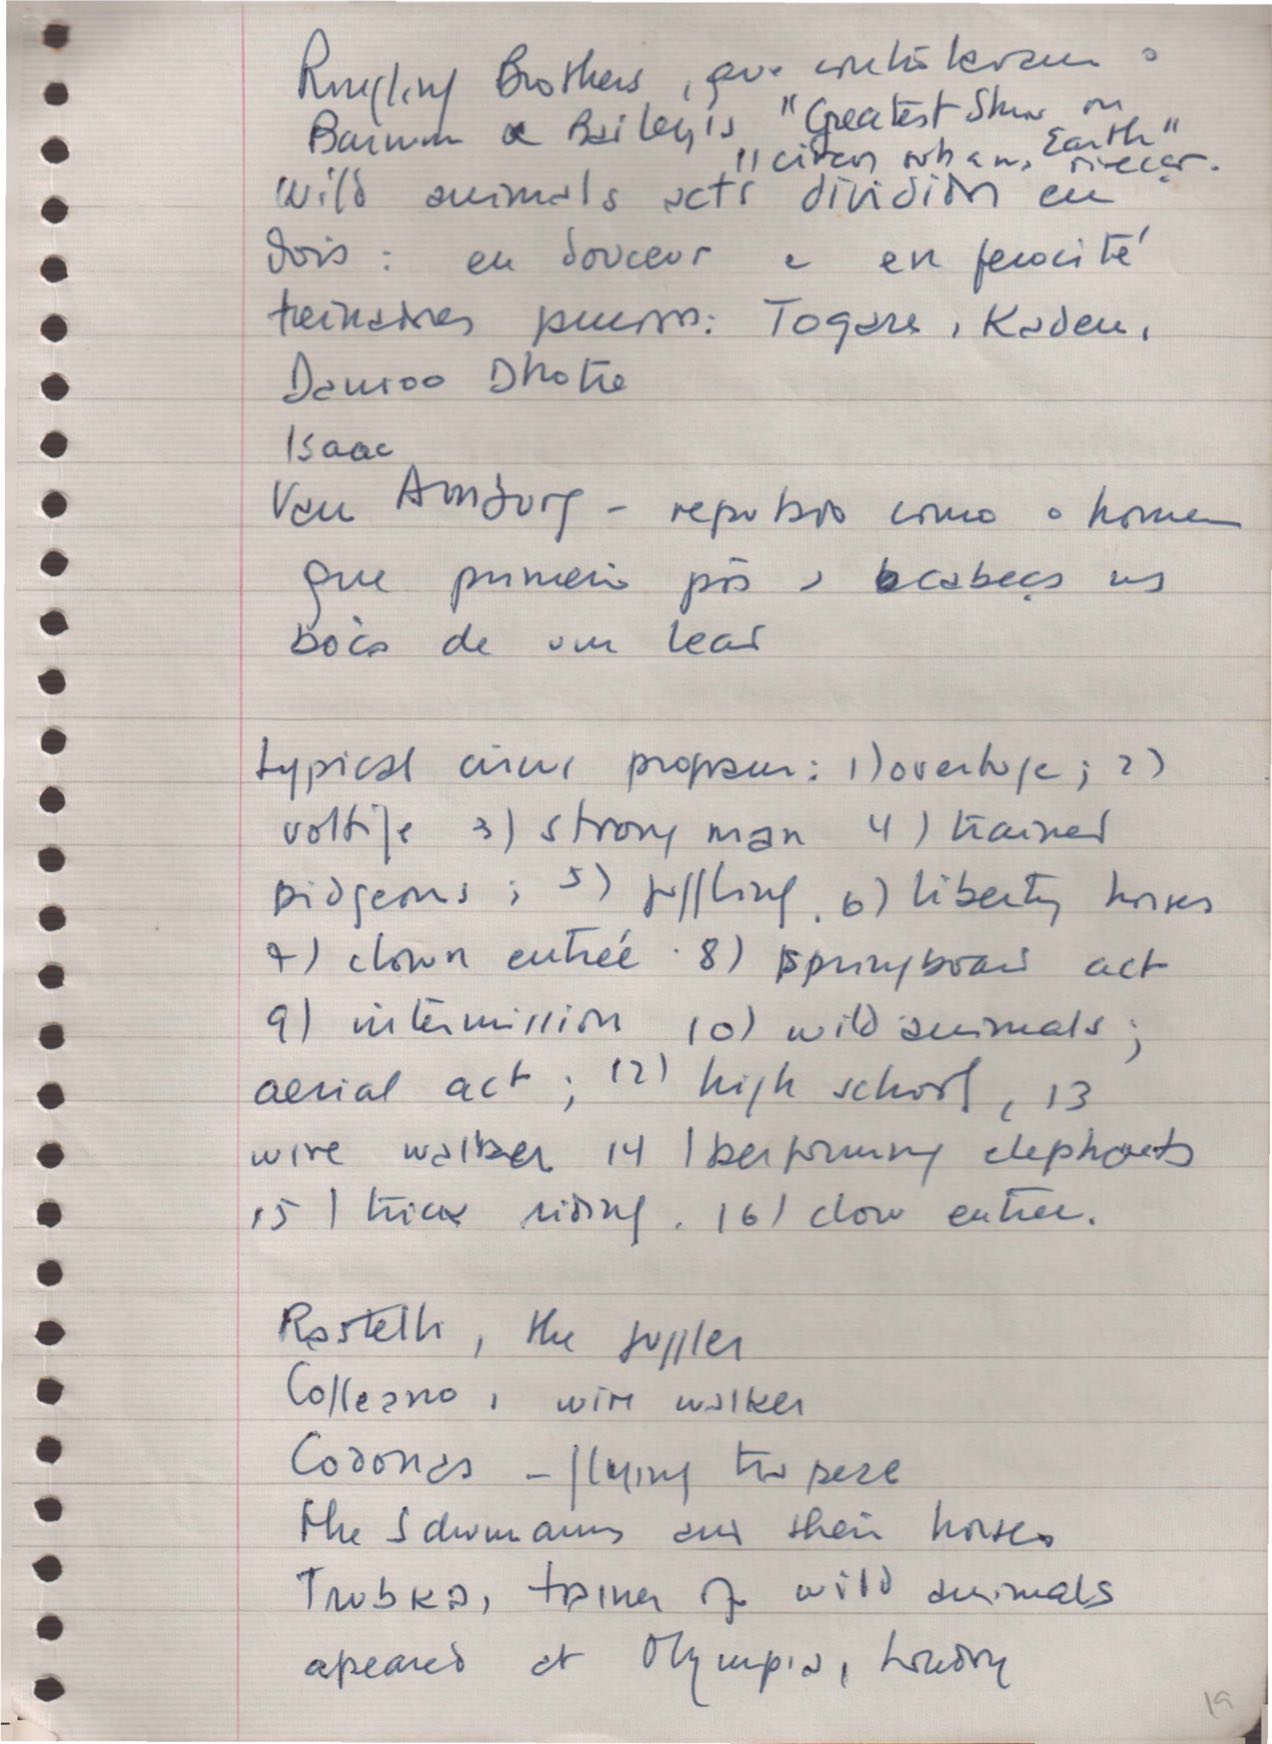 Ringling Brothers, que contrataram o
Barnum & Bailey's "Greatest Show on
Earth"
"circus
wild animals acts dividido em
dois: en douceur e en ferocité
treinadores puros: Togare, Kaden,
Damoo Dhotre
Isaac
Van Amburg - reputado como o homem
que primeiro pôs a cabeça na
bôca de um leão
typical circus program: 1) overture; 2)
voltije 3) strong man 4) trained
pidgeons; 5) juggling. 6) liberty horses
7) clown entrée. 8) springboard act
9) intermission 10) wild animals;
aerial act; 12) high school, 13
wire walker 14) performing elephants
15) trick riding. 16) clow entree.
Rastelli, the juggler
Colleano, wire walker
Codonas - flying trapeze
the Schumanns and their horses
Trubka, trainer of wild animals
apeared at Olympia, London
19